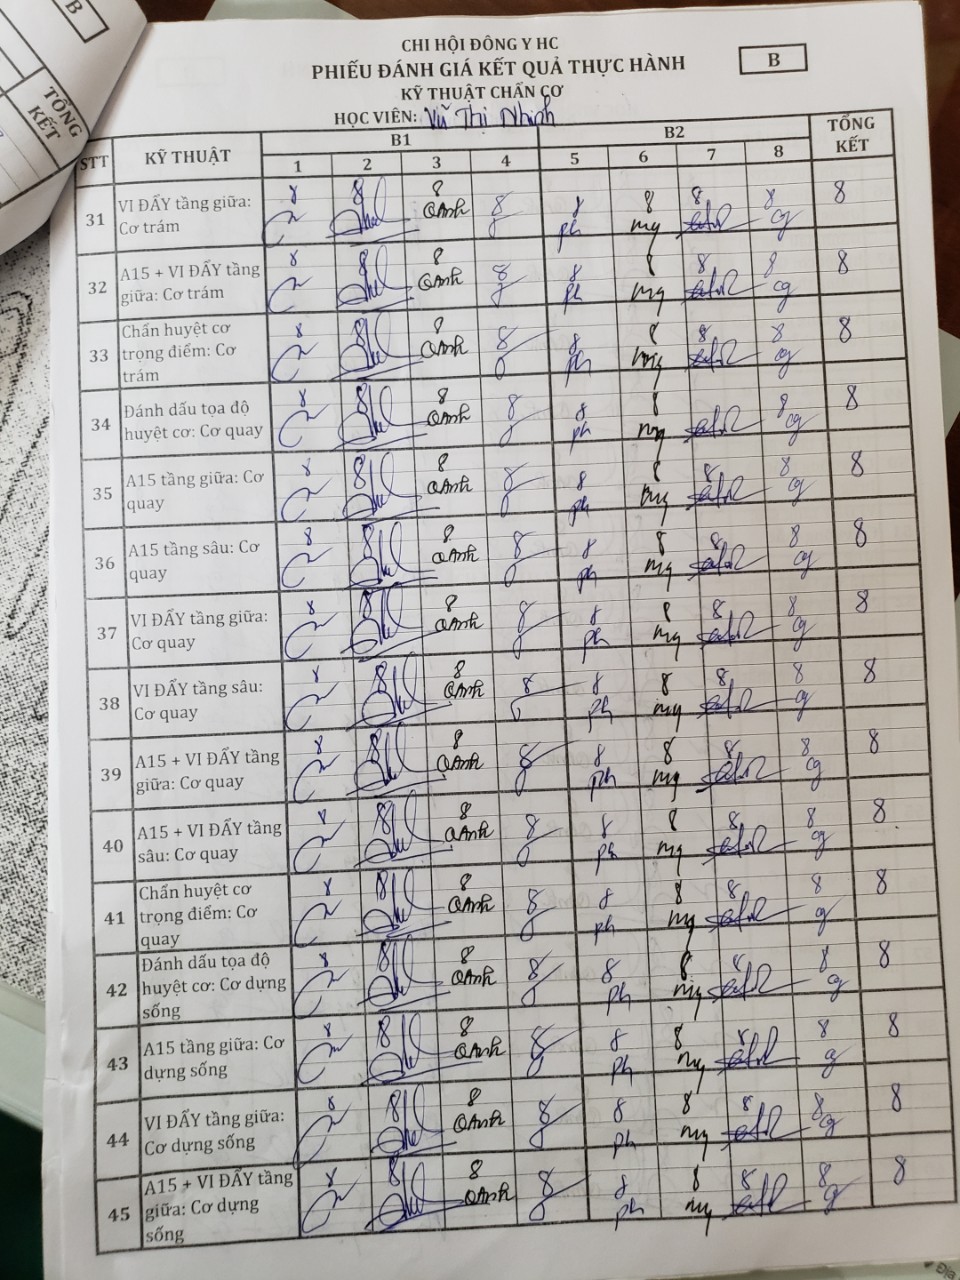 B
TỔNG
KẾT
CHI HỘI ĐÔNG Y HC
PHIẾU ĐÁNH GIÁ KẾT QUẢ THỰC HÀNH
B
KỸ THUẬT CHẨN CƠ
HỌC VIÊN: Vũ Thị Nhinh
STT KỸ THUẬT B1 B2 TỔNG KẾT
1 2 3 4 5 6 7 8
31 VI ĐẨY tầng giữa: 8 8 8 8 8 8 8 8 8
Cơ trám QAnh ph mg cg
32 A15 + VI ĐẨY tầng 8 8 8 8 8 8 8 8 8
giữa: Cơ trám QAnh ph mg cg
33 Chẩn huyệt cơ 8 8 8 8 8 8 8 8 8
trọng điểm: Cơ QAnh ph mg cg
trám
34 Đánh dấu tọa độ 8 8 8 8 8 8 8 8
huyệt cơ: Cơ quay QAnh ph mg cg
35 A15 tầng giữa: Cơ 8 8 8 8 8 8 8 8 8
quay QAnh ph mg cg
36 A15 tầng sâu: Cơ 8 8 8 8 8 8 8 8 8
quay QAnh ph mg cg
37 VI ĐẨY tầng giữa: 8 8 8 8 8 8 8 8 8
Cơ quay QAnh ph mg cg
38 VI ĐẨY tầng sâu: 8 8 8 8 8 8 8 8 8
Cơ quay QAnh ph mg cg
39 A15 + VI ĐẨY tầng 8 8 8 8 8 8 8 8 8
giữa: Cơ quay QAnh ph mg cg
40 A15 + VI ĐẨY tầng 8 8 8 8 8 8 8 8 8
sâu: Cơ quay QAnh ph mg cg
41 Chẩn huyệt cơ 8 8 8 8 8 8 8 8 8
trọng điểm: Cơ QAnh ph mg cg
quay
42 Đánh dấu tọa độ 8 8 8 8 8 8 8 8 8
huyệt cơ: Cơ dựng QAnh ph mg cg
sống
43 A15 tầng giữa: Cơ 8 8 8 8 8 8 8 8 8
dựng sống QAnh ph mg cg
44 VI ĐẨY tầng giữa: 8 8 8 8 8 8 8 8 8
Cơ dựng sống QAnh ph mg cg
45 A15 + VI ĐẨY tầng 8 8 8 8 8 8 8 8 8
giữa: Cơ dựng QAnh ph mg cg
sống